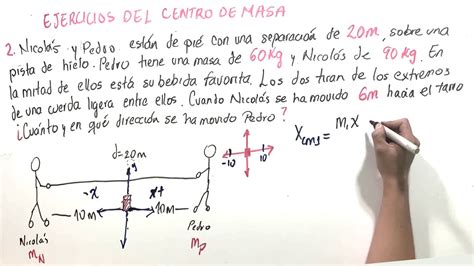 EJERCICIOS DEL CENTRO DE MASA
2. Nicolás y Pedro están de pié con una separación de 20m, sobre una
pista de hielo. Pedro tiene una masa de 60kg y Nicolás de 90kg. En
la mitad de ellos está su bebida favorita. Los dos tiran de los extremos
de una cuerda ligera entre ellos. Cuando Nicolás se ha movido 6m hacia el tarro
¿Cuánto y en qué dirección se ha movido Pedro?
d=20m
y
-x
x+
10m
10m
-10
10
Xcm1 = m1x
Nicolás
mN
Pedro
mP